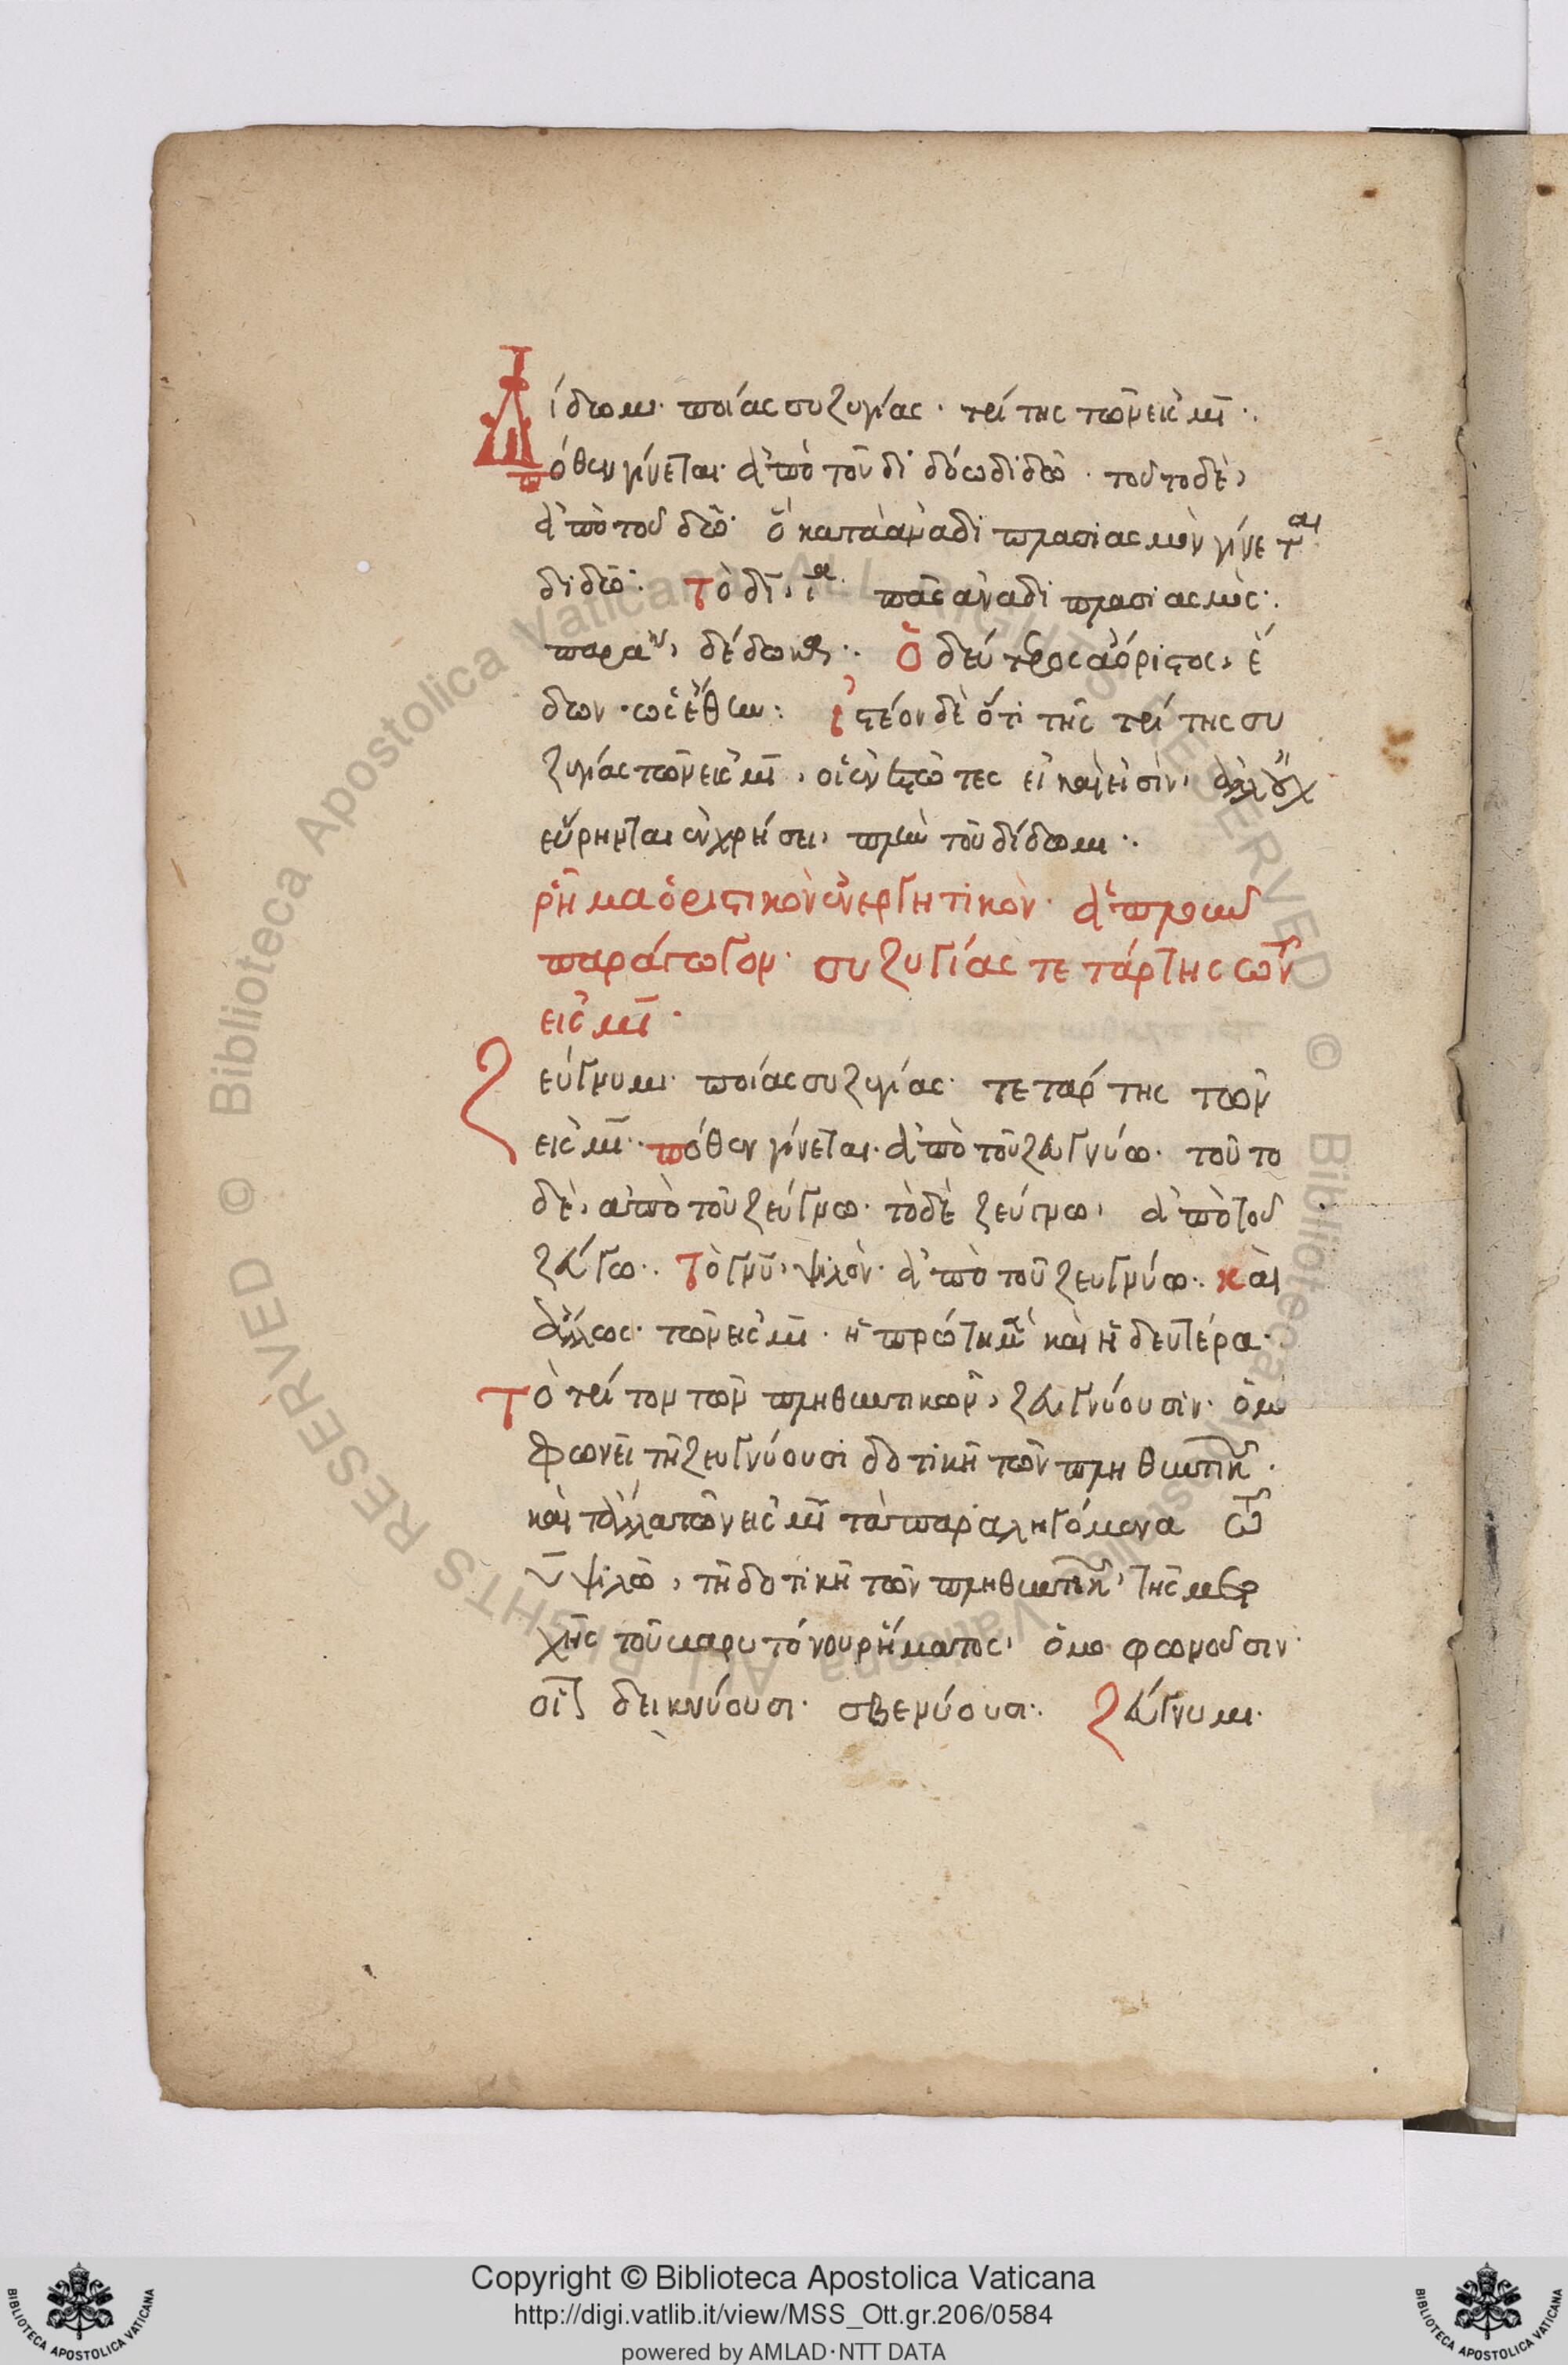 Δίδωμι· ποίας συζυγίας· τρίτης τῶν εἰς μι·
πόθεν γίνεται· ἀπὸ τοῦ διδόω διδῶ· τοῦτο δὲ,
ἀπὸ τοῦ δῶ· ὃ κατὰ ἀναδιπλασιασμὸν γίνεται
διδῶ: Τὸ δι, ι· πᾶς ἀναδιπλασιασμός:
δέδωκα: Ὁ δεύτερος ἀόριστος, ἔ
δων· ὡς ἔθην: ἰστέον δὲ ὅτι τῆς τρίτης συ
ζυγίας τῶν εἰς μι, οἱ ἐνεστῶτες εἰ καί εἰσιν, ἀλλ' οὐχ
εὕρηνται ἐν χρήσει, πλὴν τοῦ δίδωμι:
ῥῆμα ὁριστικὸν ἐνεργητικὸν· ἁπλοῦν
παράγωγον· συζυγίας τετάρτης τῶν
εἰς μι·
Ζεύγνυμι· ποίας συζυγίας· τετάρτης τῶν
εἰς μι· πόθεν γίνεται· ἀπὸ τοῦ ζευγνύω· τοῦτο
δὲ, ἀπὸ τοῦ ζεύγνω· τὸ δὲ ζεύγνω, ἀπὸ τοῦ
ζεύγω· Τὸ γνυ, ψιλὸν· ἀπὸ τοῦ ζευγνύω· καὶ
ἄλλως· τῶν εἰς μι· ἡ πρώτη μὲν καὶ ἡ δευτέρα·
Τὸ τρίτον τῶν πληθυντικῶν, ζευγνύουσιν· ὁμο
φωνεῖ τῇ ζευγνύουσι δοτικῇ τῶν πληθυντικῶν·
καὶ τἄλλα τῶν εἰς μι τὰ παραληγόμενα τῶ
υ ψιλῶ, τῇ δοτικῇ τῶν πληθυντικῶν, τῆς μετο
χῆς τοῦ βαρυτόνου ῥήματος, ὁμοφωνοῦσιν·
οἷον δεικνύουσι· σβενύουσι: Ζεύγνυμι·
Copyright © Biblioteca Apostolica Vaticana
http://digi.vatlib.it/view/MSS_Ott.gr.206/0584
powered by AMLAD·NTT DATA
BIBLIOTECA APOSTOLICA VATICANA
BIBLIOTECA APOSTOLICA VATICANA